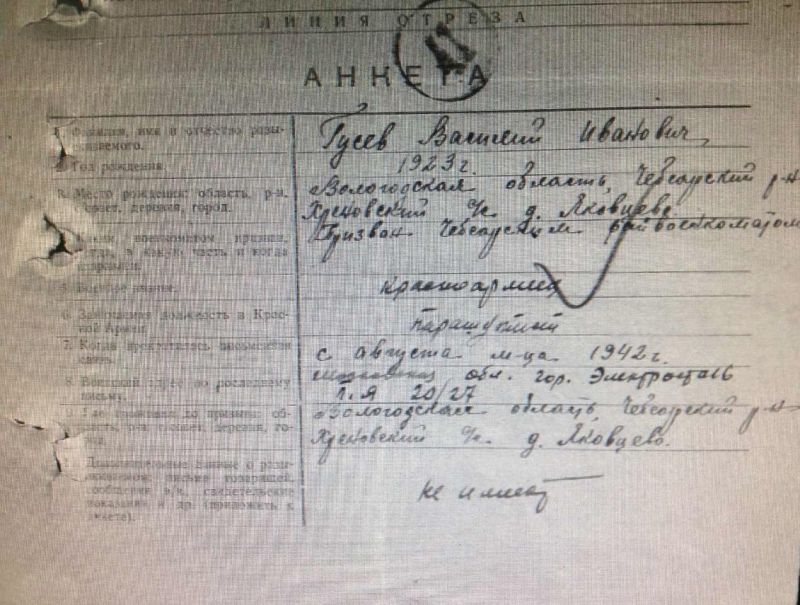 ЛИНИЯ ОТРЕЗА
АНКЕТА
1. Фамилия, имя и отчество разы-
скиваемого.
Гусев Василий Иванович,
2. Год рождения.
1923 г.
3. Место рождения: область, р-н,
деревня, город.
Вологодская область, Чебсарский р-н
Хреновский с/с. д. Яковцево.
Каким военкоматом призван,
в какую часть и когда
Призван Чебсарским райвоенкоматом
5. Воинское звание.
красноармеец
6. Занимаемая должность в Крас-
ной Армии.
7. Когда прекратилась письменная
связь.
с августа м-ца 1942 г.
8. Воинский адрес по последнему
письму.
обл. гор. Электросталь
п.я 20/27
до призыва: об-
деревня, го-
Вологодская область, Чебсарский р-н
Хреновский с/с. д. Яковцево.
Дополнительные данные о разы-
скиваемом: письма товарищей,
сообщения в/ч, свидетельские
показания и др. (приложить к
анкете).
не имеет